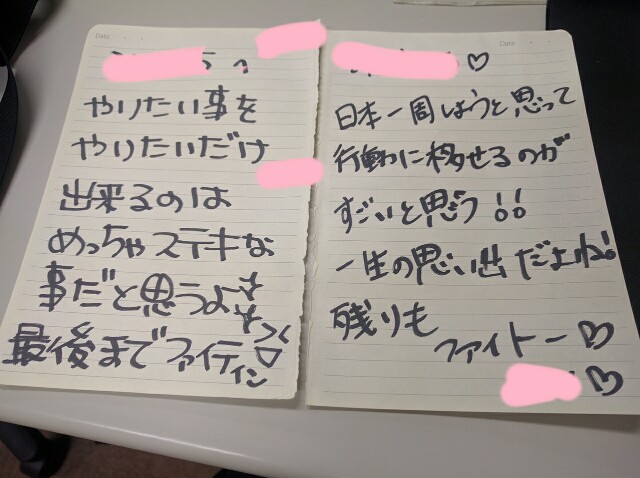 Date
やりたい事を
やりたいだけ
出来るのは
めっちゃステキな
事だと思うよ
最後までファイティン
Date
♡
日本一周しようと思って
行動に移せるのが
すごいと思う!!
一生の思い出だよね!
残りも
ファイトー♡
♡